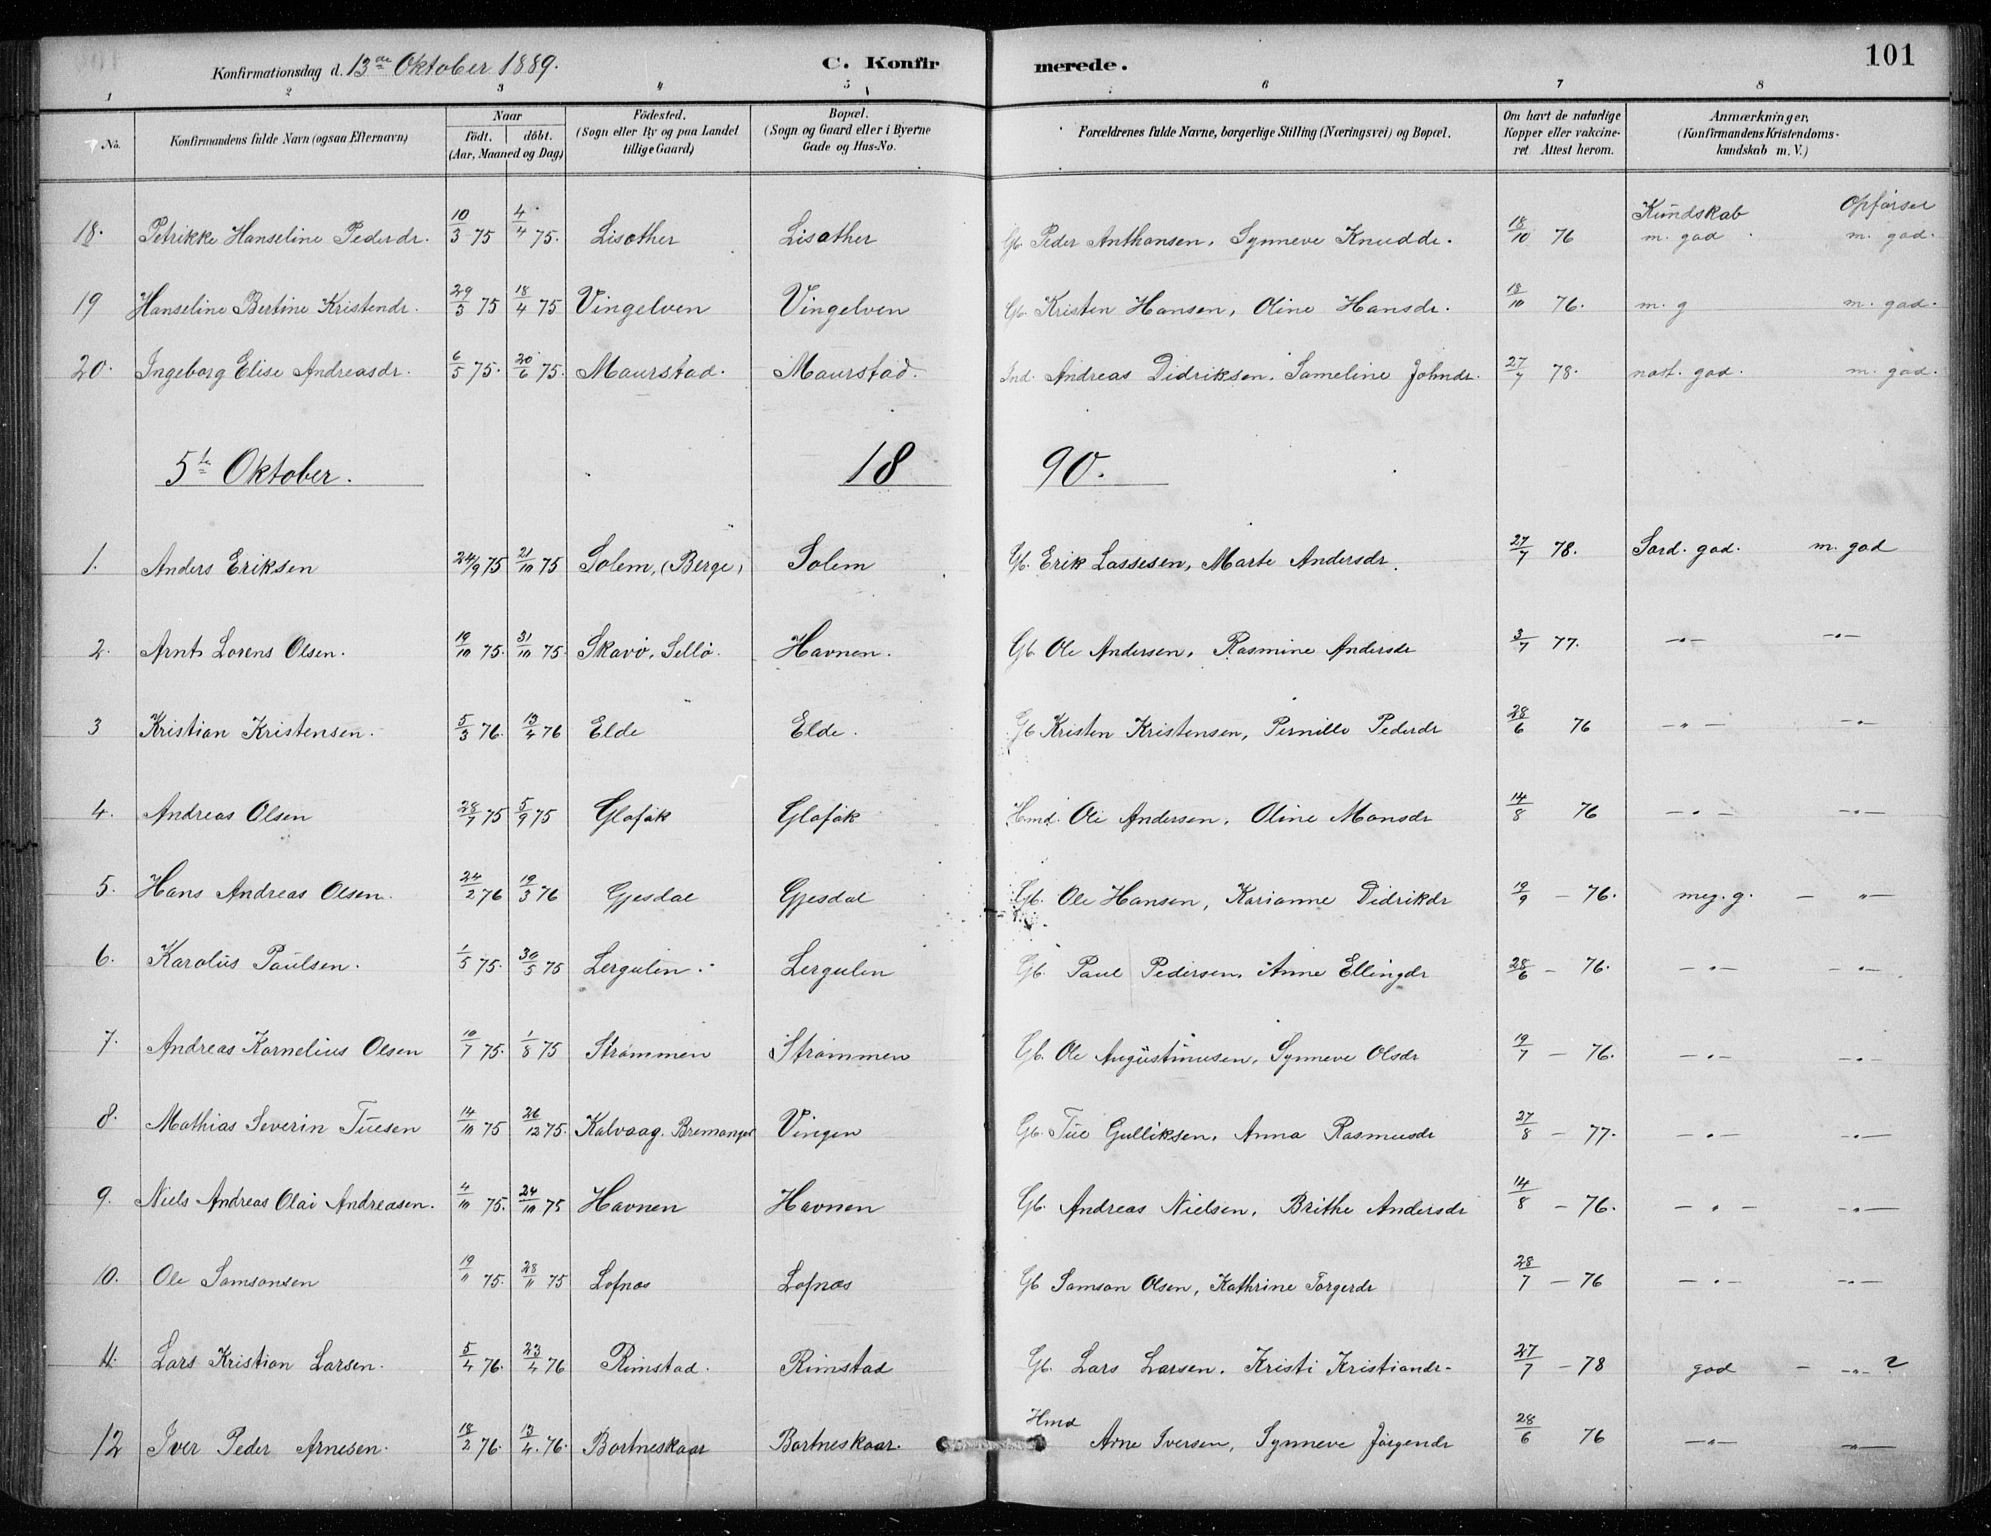 Konfirmationsdag d. 13de Oktober 1889. C. Konfirmerede. 101
1 2 3 4 5 6 7 8
No. Konfirmandens fulde Navn (ogsaa Efternavn) Naar födt. döbt. (Aar, Maaned og Dag) Födested. (Sogn eller By og paa Landet tillige Gaard) Bopæl. (Sogn og Gaard eller i Byerne Gade og Hus-No. Forældrenes fulde Navne, borgerlige Stilling (Næringsvei) og Bopæl. Om havt de naturlige Kopper eller vakcineret Attest herom. Anmærkninger. (Konfirmandens Kristendomskundskab m. V.)
Kundskab Opførsel
18. Petrikke Hanseline Pederdr. 10/3 75 4/4 75. Lisæther Lisæther Gb. Peder Anthonsen, Synneve Knuddr. 18/10 76 m. god m. god.
19 Hanseline Bertine Kristendr. 29/3 75 18/4 75 Vingelven Vingelven Gb. Kristen Hansen, Oline Hansdr. 18/10 76. m. g m. god.
20. Ingeborg Elise Andreasdr. 6/5 75. 20/6 75. Maurstad. Maurstad. Ind. Andreas Didriksen, Sameline Johndr. 27/7 78. næst. god. m. god.
5te Oktober. 18 90.
1. Anders Eriksen 24/9 75 21/10 75 Solem, (Berge) Solem Gb. Erik Lassesen, Marte Andersdr. 27/7 78. Særd. god. m. god
2. Arnt Lorens Olsen. 19/10 75. 31/10 75. Skavø, Sellø. Havnen. Gb. Ole Andersen, Rasmine Andersdr 3/7 77. —"— —"—
3 Kristian Kristensen. 5/3 76. 13/4 76 Elde Elde. Gb Kristen Kristensen, Pernille Pederdr 28/6 76 —"— —"—
4. Andreas Olsen 28/7 75 5/9 75 Gloføk Gloføk Hmd. Ole Andersen, Oline Monsdr 14/8 76 —"— —"—
5. Hans Andreas Olsen. 24/2 76 19/3 76 Gjesdal Gjesdal Gb. Ole Hansen, Karianne Didrikdr 19/9 – 76. meg. g. — "—
6. Karolus Paulsen. 1/5 75. 30/5 75 Lergulen. Lergulen Gb. Paul Pedersen, Anne Ellingdr 28/6 – 76. —"— —"—
7. Andreas Kornelius Olsen 10/7 75. 1/8 75 Strømmen Strømmen Gb. Ole Augustinusen, Synneve Olsdr 19/7 – 76. —"— —"—
8. Mathias Severin Tuesen 14/10 75 26/12 75. Kalvaag. Bremanger Vingen Gb. Tue Gulliksen, Anna Rasmusdr 27/8 – 77. —"— —"—
9. Niels Andreas Olai Andreasen. 4/10 75. 24/10 75 Havnen Havnen Gb. Andreas Nielsen, Brithe Andersdr 14/8 – 76. —"— —"—
10. Ole Samsonsen 19/11 75. 28/11 75 Lofnæs Lofnæs Gb Samson Olsen, Kathrine Torgerdr 28/7 – 76 —"— —"—
11. Lars Kristian Larsen. 5/4 76. 23/4 76 Rimstad. Rimstad Gb. Lars Larsen, Kristi Kristiandr. 27/7 – 78 god — —"— ?
12 Iver Peder Arnesen. 18/2 76. 13/4. 76. Bortneskaar Bortneskaar. Hmd Arne Iversen, Synneve Jørgendr 28/6 76 —"— —"—